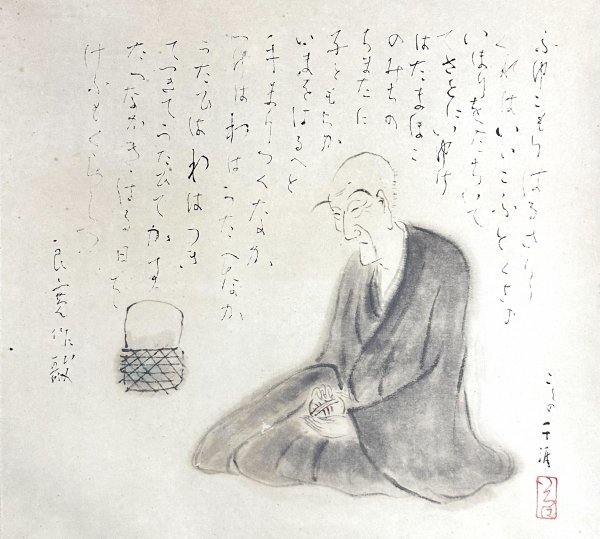 ふゆこもりはるさり
くれはいいこふとくさの
いほりをたちいて
てさとにいゆけ
はたまほこ
のみちの
ちまたに
子ともらか
いまをはるへと
手まりつくなか
つけはわはうたへなか
うたへはわはつき
てつきてうたひてかすみ
たつなかきはる日を
けふもくらしつ
良寛作歌